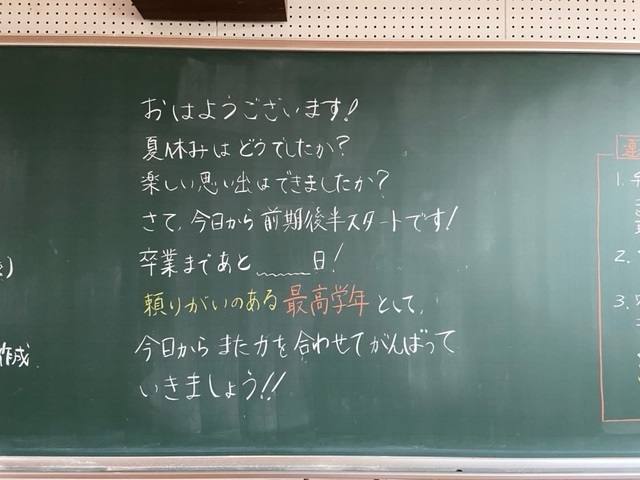 おはようございます!
夏休みはどうでしたか?
楽しい思い出はできましたか?
さて、今日から前期後半スタートです!
卒業まであと____日!
頼りがいのある最高学年として、
今日からまた力を合わせてがんばって
いきましょう!!
作成
1.
2.
3.